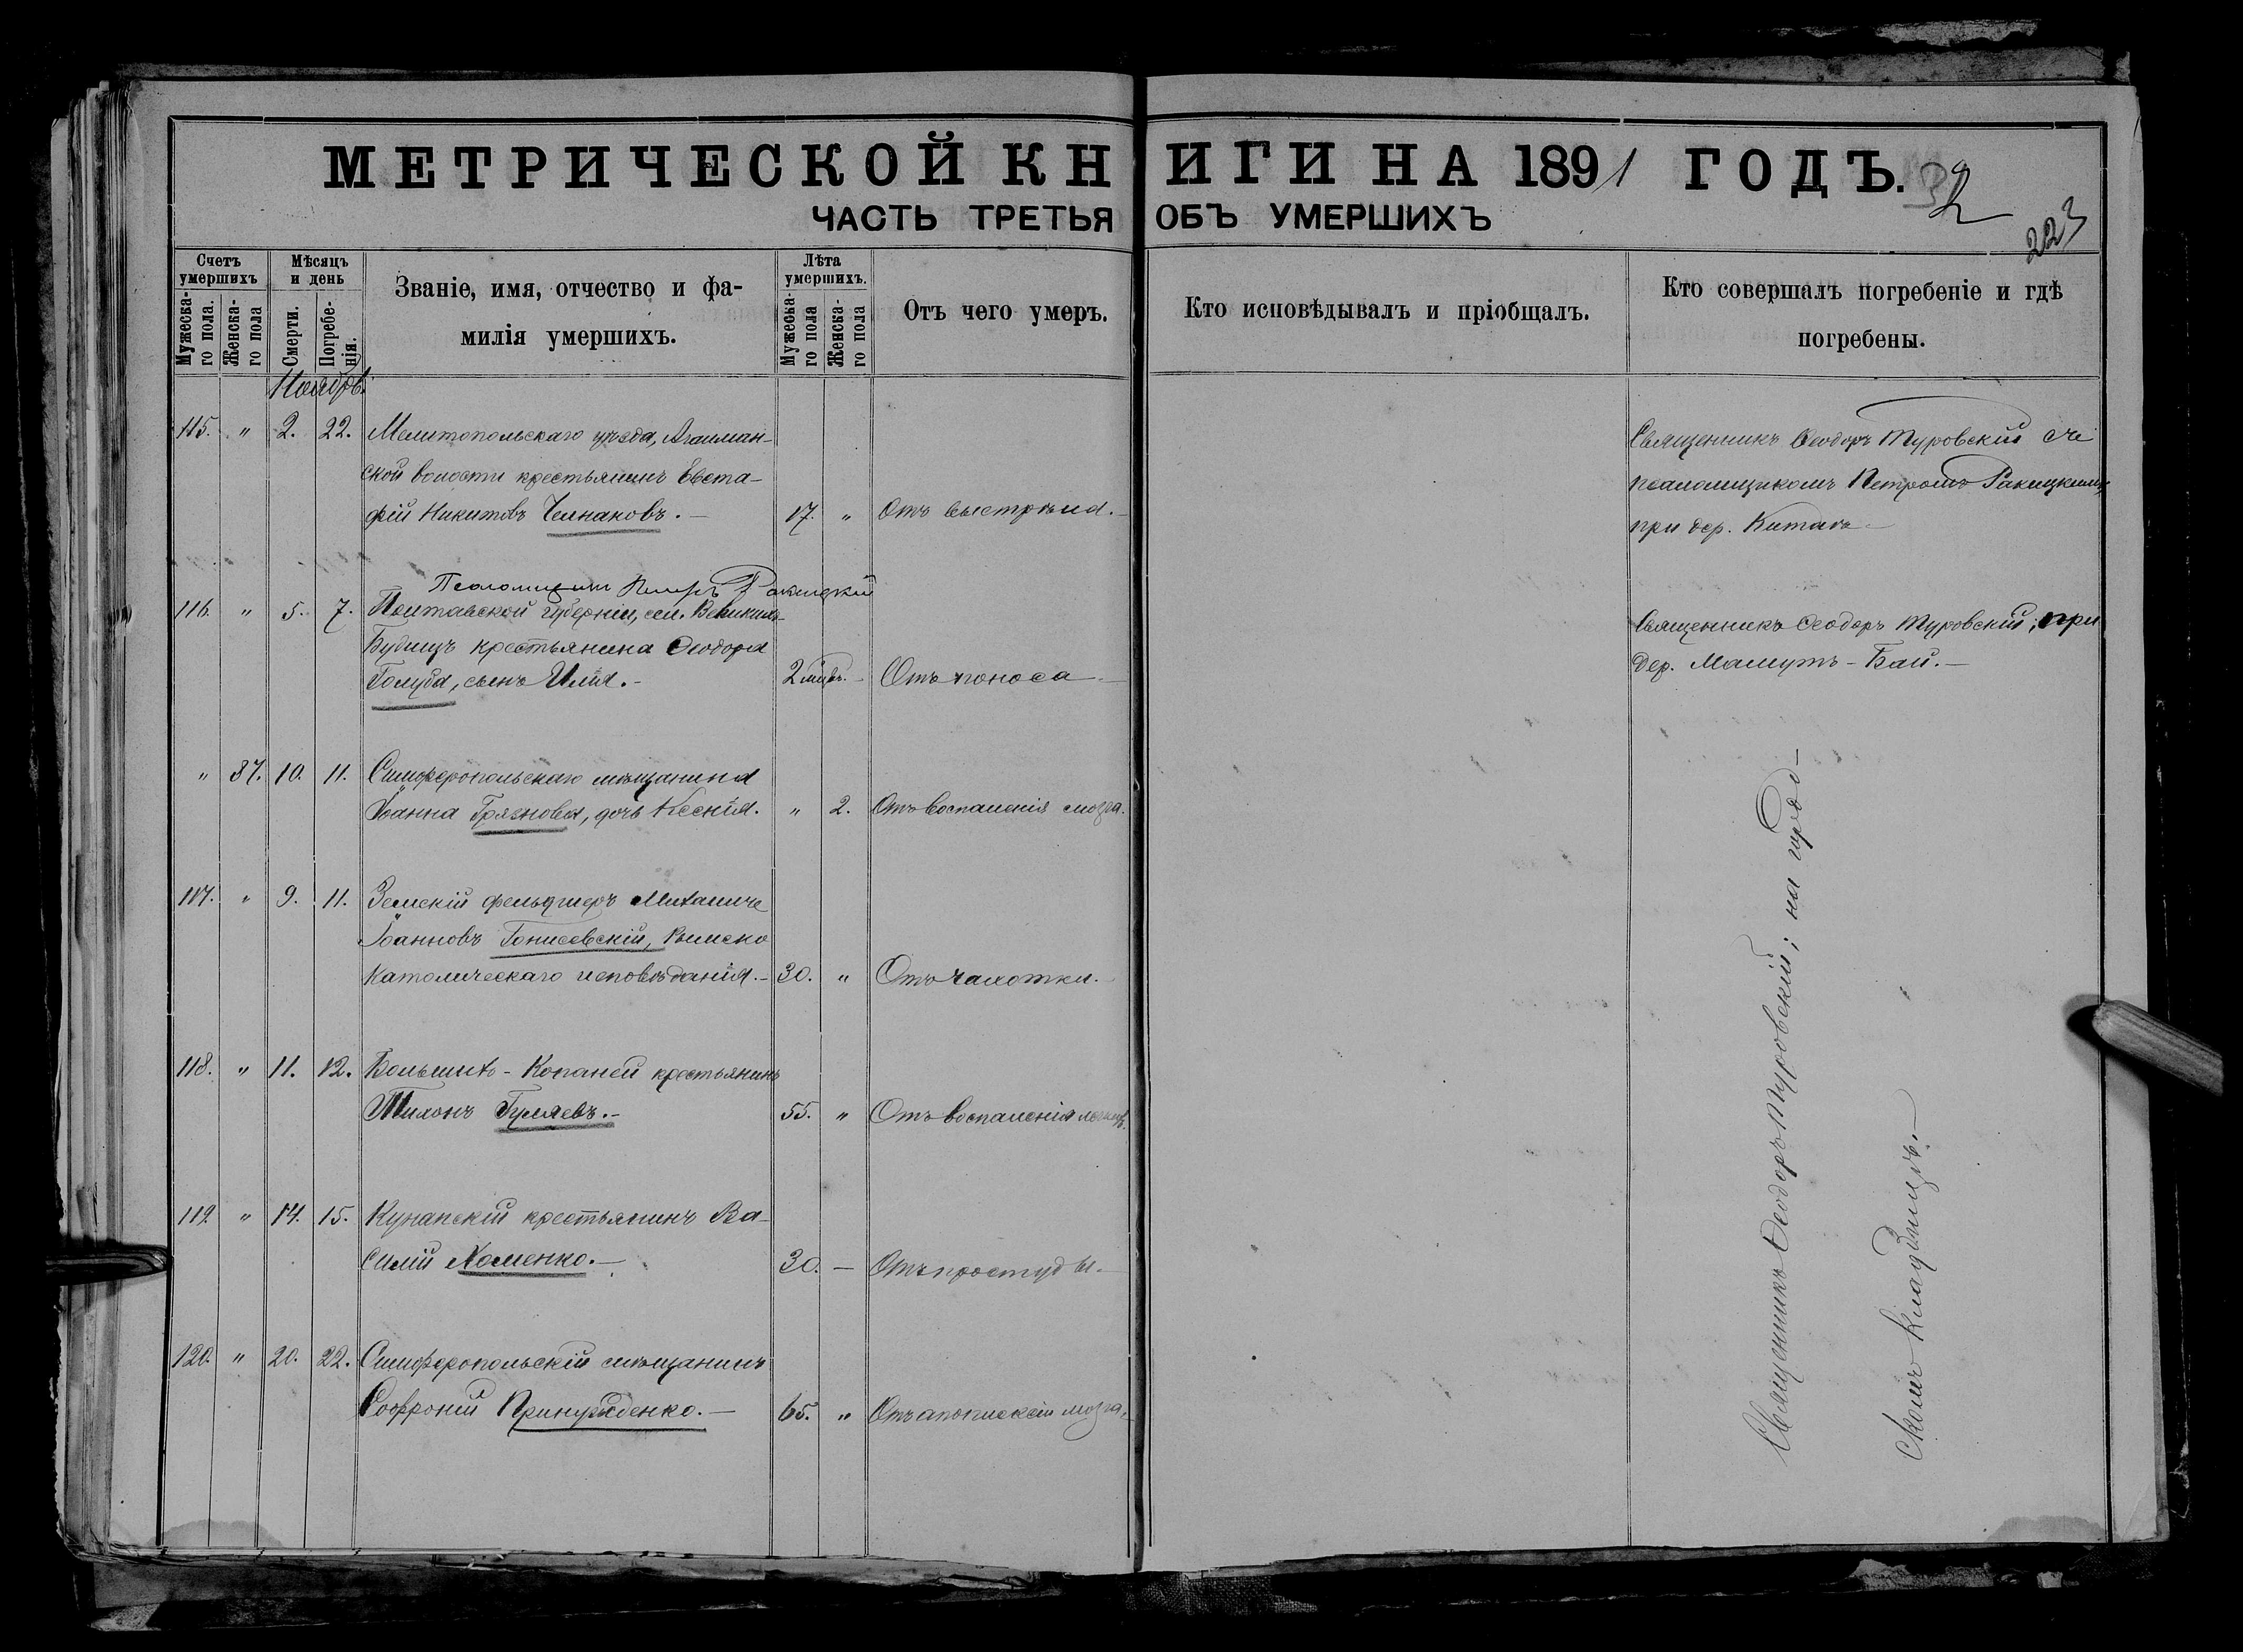 МЕТРИЧЕСКОЙ КНИГИ НА 1891 ГОДЪ.
32
223
ЧАСТЬ ТРЕТЬЯ ОБЪ УМЕРШИХЪ
Счетъ умершихъ
Мужеска-го пола.
Женска-го пола
Мѣсяцъ и день
Смерти.
Погребе-нія.
Званіе, имя, отчество и фа-
милія умершихъ.
Лѣта умершихъ.
Мужеска-го пола
Женска-го пола
Отъ чего умеръ.
Кто исповѣдывалъ и пріобщалъ.
Кто совершалъ погребеніе и гдѣ
погребены.
Ноябрь.
115. " 2. 22. Мелитопольскаго уѣзда, Агайман-
ской волости крестьянинъ Евста-
фій Никитовъ Челнаковъ. — 17. " Отъ выстрѣла. —
Священникъ Ѳеодоръ Туровскій съ
псаломщикомъ Петромъ Ракицкимъ,
при дер. Китаѣ —
Псаломщикъ Петръ Ракицкій
116. " 5. 7. Полтавской губерніи, сел. Великихъ-
Будищъ крестьянина Ѳеодора
Голуба, сынъ Илія. — 2 мѣс. — Отъ поноса —
Священникъ Ѳеодоръ Туровскій; при
дер. Мамутъ-Бай. —
" 37. 10. 11. Симферопольскаго мѣщанина
Іоанна Грязнова, дочь Ксенія. " 2. Отъ воспаленія мозга.
117. " 9. 11. Земскій фельдшеръ Михаилъ
Іоанновъ Гонисевскій, Римско
католическаго исповѣданія. — 30. " Отъ чахотки. —
118. " 11. 12. Большихъ-Копаней крестьянинъ
Тихонъ Гуляевъ. — 55. " Отъ воспаленія легкихъ.
119. " 14. 15. Кунанскій крестьянинъ Ва-
силій Хоменко. — 30. — Отъ простуды. —
120. " 20. 22. Симферопольскій мѣщанинъ
Софроній — 65. " Отъ апоплексіи мозга.
Священникъ Ѳеодоръ Туровскій; на город-
скомъ кладбищѣ. —